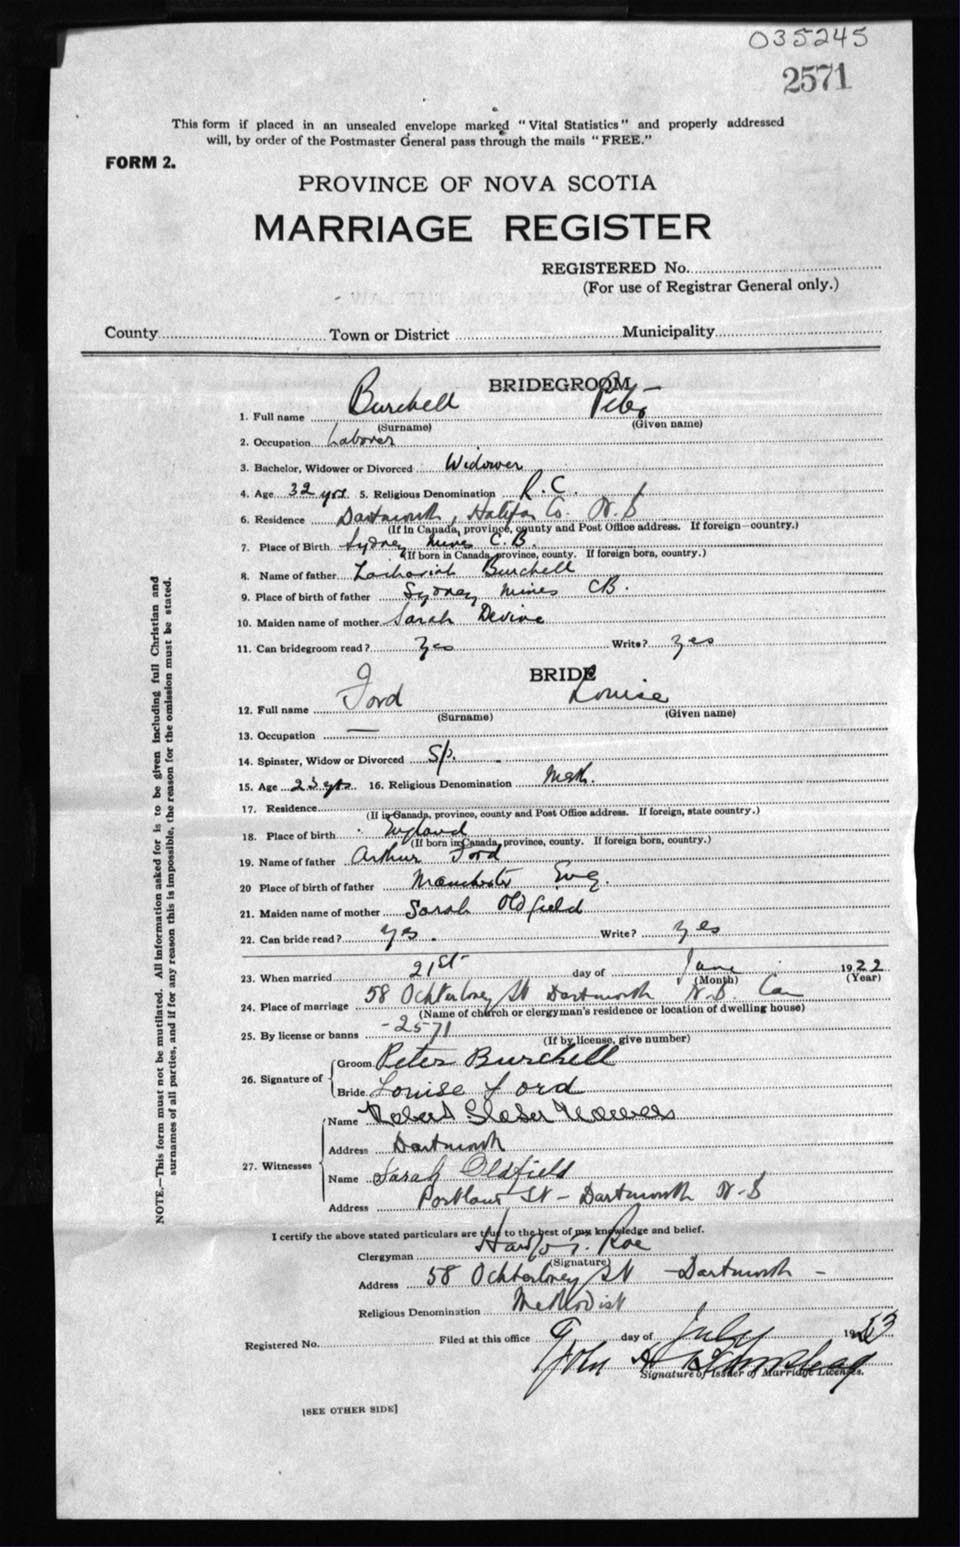 035245
2571
This form if placed in an unsealed envelope marked "Vital Statistics" and properly addressed
will, by order of the Postmaster General pass through the mails "FREE."
FORM 2.
PROVINCE OF NOVA SCOTIA
MARRIAGE REGISTER
REGISTERED No.
(For use of Registrar General only.)
County Town or District Municipality
BRIDEGROOM
1. Full name Burchell Peter
(Surname) (Given name)
2. Occupation Laborer
3. Bachelor, Widower or Divorced Widower
4. Age 32 yrs. 5. Religious Denomination R.C.
6. Residence Dartmouth, Halifax Co. N.S
(If in Canada, province, county and Post Office address. If foreign—country.)
7. Place of Birth Sydney Mines C.B.
(If born in Canada, province, county. If foreign born, country.)
8. Name of father Zachariah Burchell
9. Place of birth of father Sydney Mines CB.
10. Maiden name of mother Sarah Devine
11. Can bridegroom read? Yes Write? Yes
BRIDE
12. Full name Ford Louise
(Surname) (Given name)
13. Occupation —
14. Spinster, Widow or Divorced Sp.
15. Age 23 yrs 16. Religious Denomination Meth.
17. Residence
(If in Canada, province, county and Post Office address. If foreign, state country.)
18. Place of birth England
(If born in Canada, province, county. If foreign born, country.)
19. Name of father Arthur Ford
20 Place of birth of father Manchester Eng.
21. Maiden name of mother Sarah Oldfield
22. Can bride read? Yes. Write? Yes
23. When married 21st day of June 1922
(Month) (Year)
24. Place of marriage 58 Ochterloney St Dartmouth N.S. Can
(Name of church or clergyman's residence or location of dwelling house)
25. By license or banns -2571
(If by license, give number)
26. Signature of
Groom Peter Burchell
Bride Louise Ford
27. Witnesses
Name Robert
Address Dartmouth
Name Sarah Oldfield
Address Portland St - Dartmouth N-S
I certify the above stated particulars are true to the best of my knowledge and belief.
Clergyman Roe
(Signature)
Address 58 Ochterloney St - Dartmouth -
Religious Denomination Methodist
Registered No. Filed at this office day of July 192
John
Signature of Issuer of Marriage Licenses.
[SEE OTHER SIDE]
NOTE.—This form must not be mutilated. All information asked for is to be given including full Christian and
surnames of all parties, and if for any reason this is impossible, the reason for the omission must be stated.